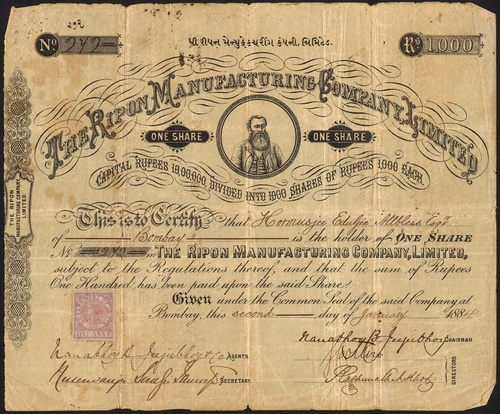 242
No 242
ધી રીપન મેન્યુફેકચરીંગ કંપની, લિમિટેડ.
Rs 1,000
THE RIPON MANUFACTURING COMPANY, LIMITED
ONE SHARE ONE SHARE
CAPITAL RUPEES 10,00,000, DIVIDED INTO 1000 SHARES OF RUPEES 1,000 EACH.
THE RIPON MANUFACTURING COMPANY LIMITED
This is to Certify that Hormusjee Eduljee Esqr
of Bombay is the holder of ONE SHARE
No 242 THE RIPON MANUFACTURING COMPANY, LIMITED,
subject to the Regulations thereof, and that the sum of Rupees
One Hundred has been paid upon the said Share.
Given under the Common Seal of the said Company at
Bombay, this second day of January 1884
ONE ANNA
CHAIRMAN
AGENTS
SECRETARY
DIRECTORS